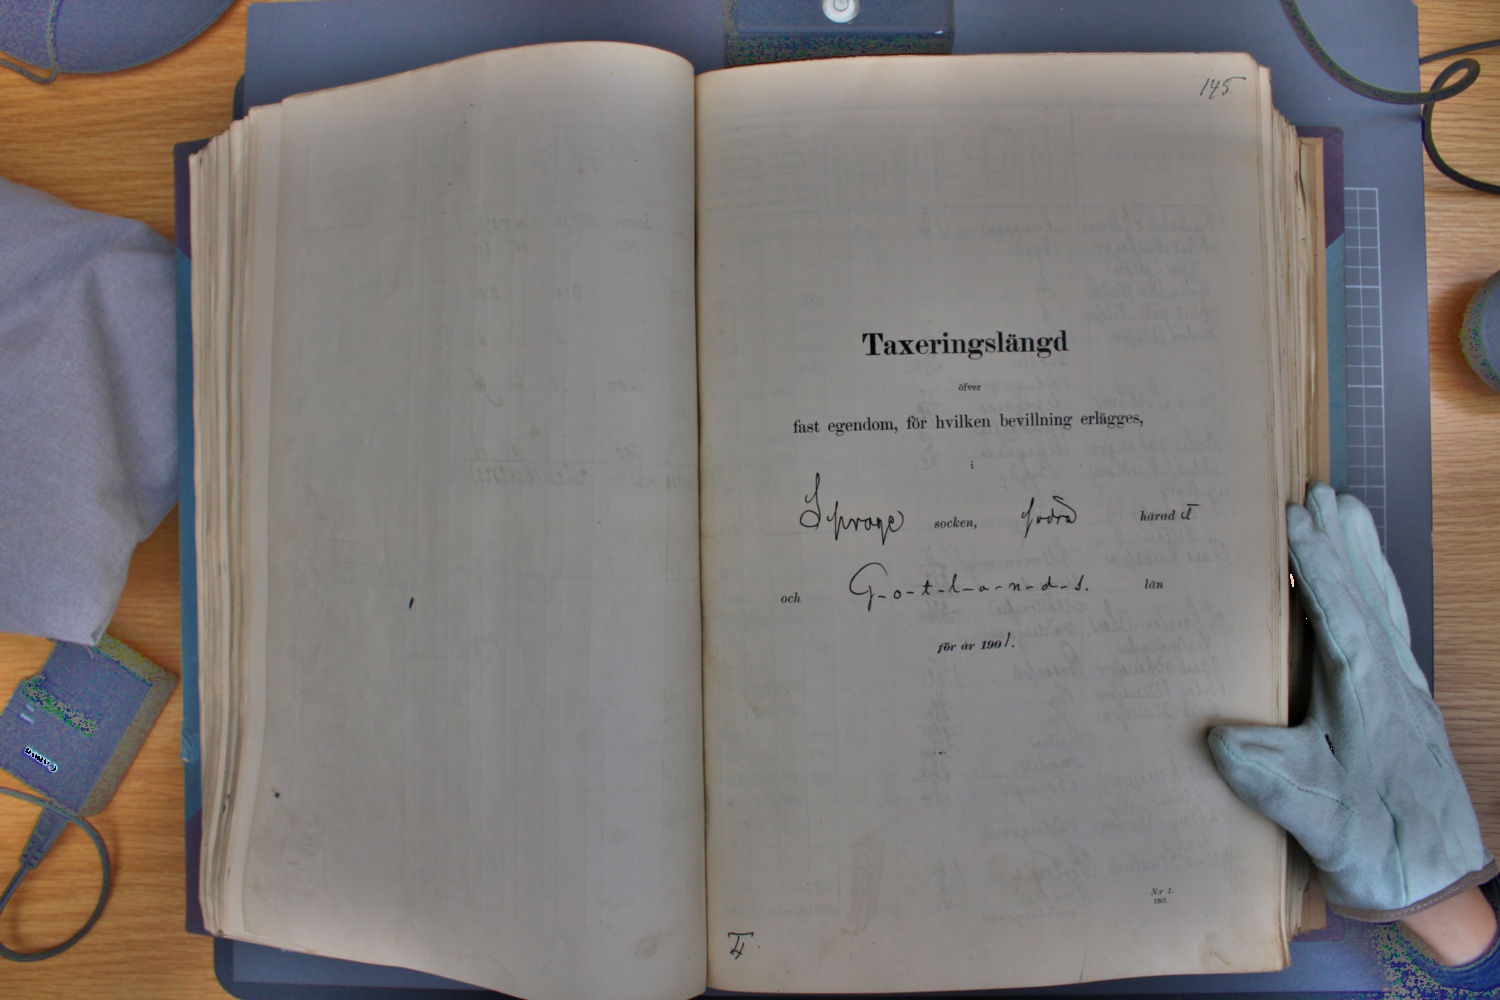 145
Taxeringslängd
öfver
fast egendom, för hvilken bevillning erlägges,
i
Sproge socken, södra härad
och Gotlands. län
för år 1901.
N:r 1.
1901.